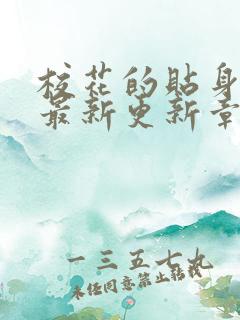 校花的贴身
最新更新章
一三五七九
未经同意禁止转载